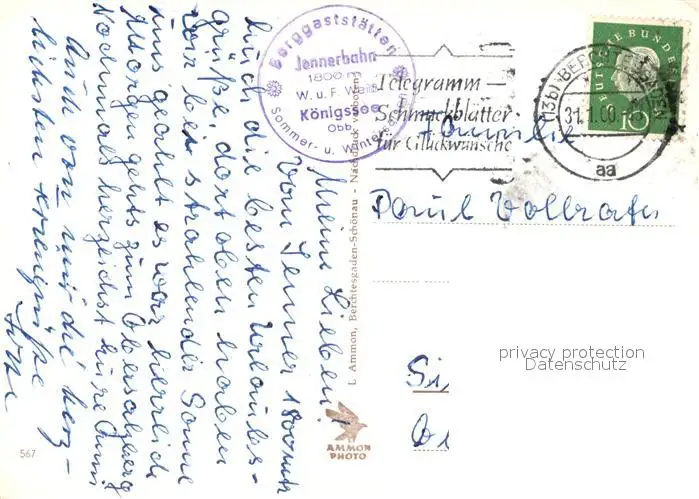 Berggaststätten
Jennerbahn
1800 m
W. u. F. Weiß
Königssee
Obb.
Sommer- u. Winter
Telegramm –
Schmuckblätter
für Glückwünsche
(13b) BERCHTESGADEN
31.1.60
aa
DEUTSCHE BUNDES
10
Familie
Paul Vollrath
Si
Br
privacy protection
Datenschutz
Meine Lieben!
Vom Jenner 1800 mtr
Euch die besten Urlaubs-
grüße, dort oben haben
wir bei strahlender Sonne
uns geahlt es war herrlich
Morgen gehts zum Obersalzberg
Nochmals herzlichst Eure Anni
Auch von mir die herz-
lichsten Feriengrüße
L Ammon, Berchtesgaden-Schönau - Nachdruck verboten
AMMON
PHOTO
567